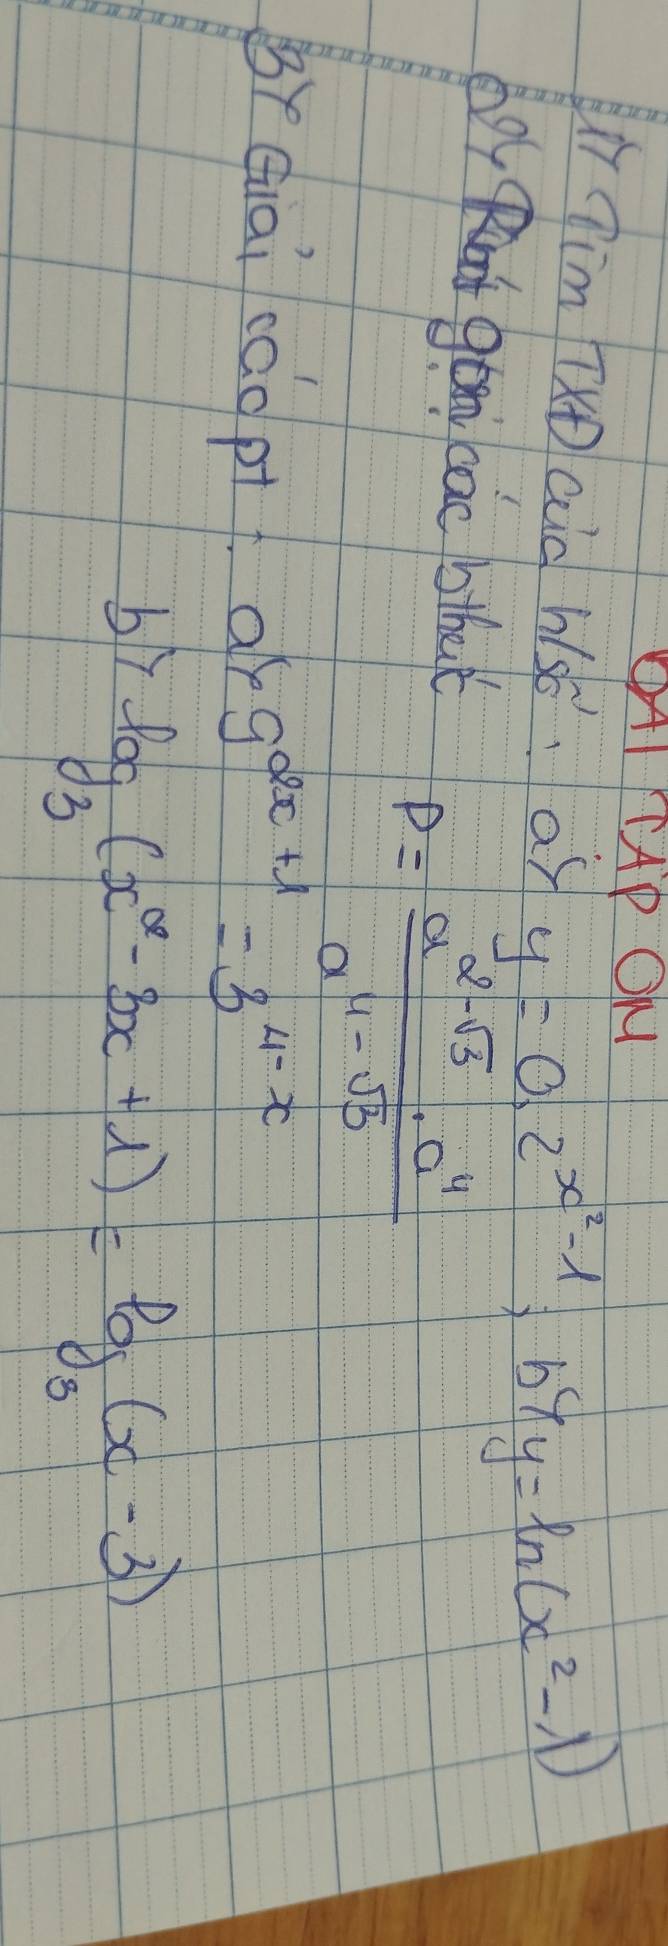 BÀI TẬP ÔN
1, Tìm TXĐ của h/số: a, y = 0,2^{x²-1} ; b, y = ln(x² - 1)
2, Rút gọn các bthức P = \frac{a^{2-√3} . a^4}{a^{4-√3}}
3, Giải các pt: a, 9^{2x+1} = 3^{4-x}
b, log_3 (x² - 3x + 1) = log_3 (x - 3)